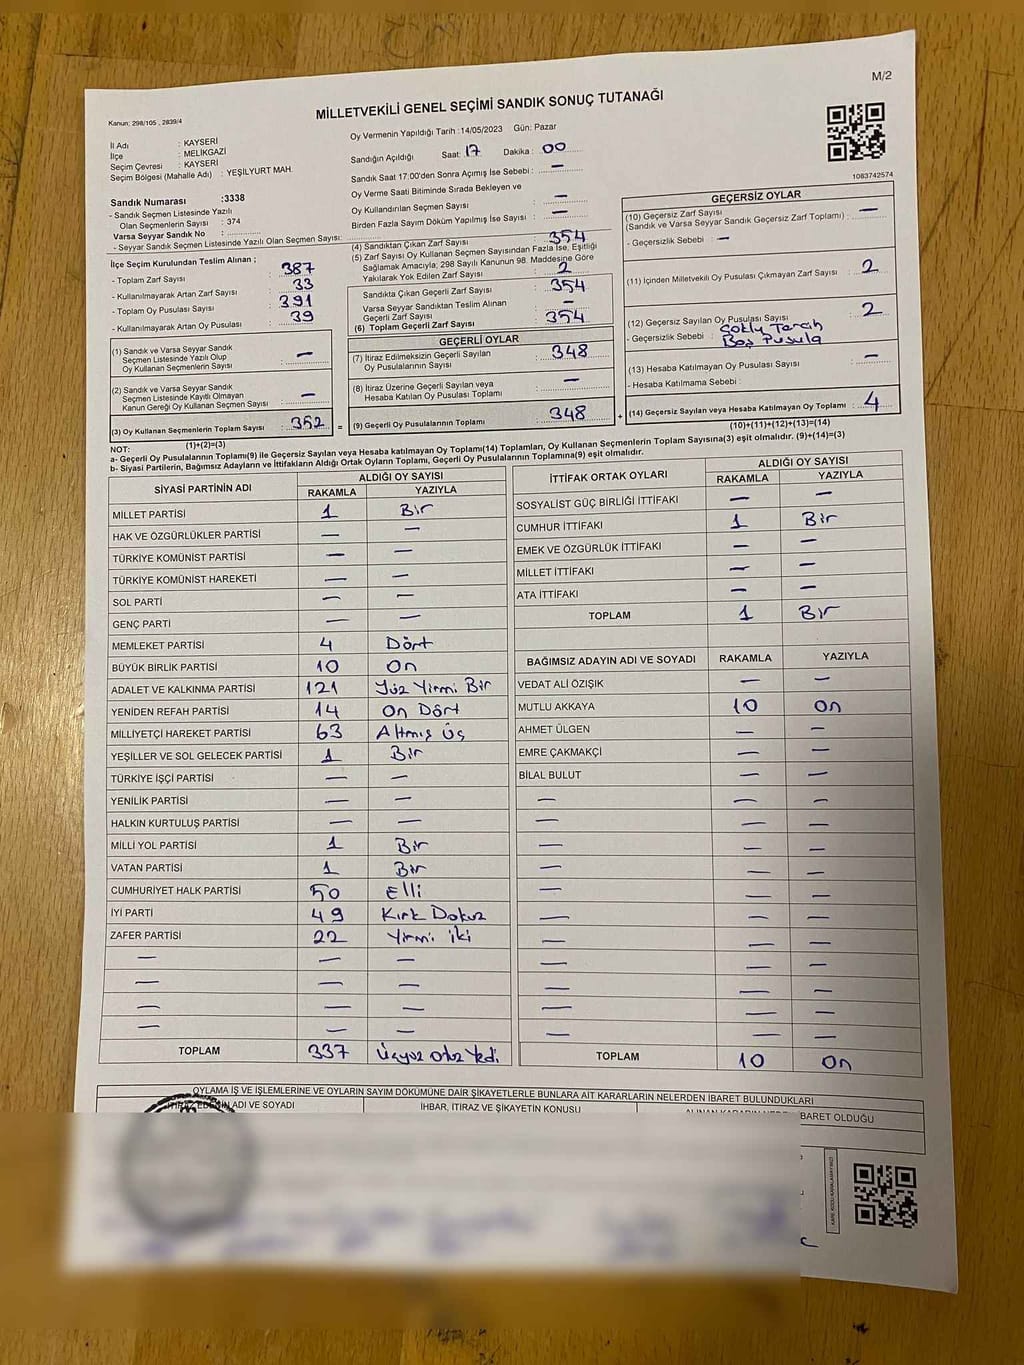 M/2
MİLLETVEKİLİ GENEL SEÇİMİ SANDIK SONUÇ TUTANAĞI
Kanun: 298/105 , 2839/4
İl Adı : KAYSERİ
İlçe : MELİKGAZİ
Seçim Çevresi : KAYSERİ
Seçim Bölgesi (Mahalle Adı) : YEŞİLYURT MAH.
Sandık Numarası :3338
- Sandık Seçmen Listesinde Yazılı
Olan Seçmenlerin Sayısı : 374
Varsa Seyyar Sandık No :
- Seyyar Sandık Seçmen Listesinde Yazılı Olan Seçmen Sayısı:
İlçe Seçim Kurulundan Teslim Alınan ;
- Toplam Zarf Sayısı : 387
- Kullanılmayarak Artan Zarf Sayısı : 33
- Toplam Oy Pusulası Sayısı : 391
- Kullanılmayarak Artan Oy Pusulası : 39
(1) Sandık ve Varsa Seyyar Sandık
Seçmen Listesinde Yazılı Olup
Oy Kullanan Seçmenlerin Sayısı : —
(2) Sandık ve Varsa Seyyar Sandık
Seçmen Listesinde Kayıtlı Olmayan
Kanun Gereği Oy Kullanan Seçmen Sayısı : —
(3) Oy Kullanan Seçmenlerin Toplam Sayısı : 352
(1)+(2)=(3)
Oy Vermenin Yapıldığı Tarih :14/05/2023 Gün: Pazar
Sandığın Açıldığı Saat: 17 Dakika : 00
Sandık Saat 17:00'den Sonra Açımış İse Sebebi : —
Oy Verme Saati Bitiminde Sırada Bekleyen ve
Oy Kullandırılan Seçmen Sayısı : —
Birden Fazla Sayım Döküm Yapılmış İse Sayısı : —
(4) Sandıktan Çıkan Zarf Sayısı : 354
(5) Zarf Sayısı Oy Kullanan Seçmen Sayısından Fazla İse, Eşitliği
Sağlamak Amacıyla, 298 Sayılı Kanunun 98. Maddesine Göre
Yakılarak Yok Edilen Zarf Sayısı : 2
Sandıkta Çıkan Geçerli Zarf Sayısı : 354
Varsa Seyyar Sandıktan Teslim Alınan
Geçerli Zarf Sayısı : —
(6) Toplam Geçerli Zarf Sayısı : 354
GEÇERLİ OYLAR
(7) İtiraz Edilmeksizin Geçerli Sayılan
Oy Pusulalarının Sayısı : 348
(8) İtiraz Üzerine Geçerli Sayılan veya
Hesaba Katılan Oy Pusulası Toplamı : —
= (9) Geçerli Oy Pusulalarının Toplamı : 348
1083742574
GEÇERSİZ OYLAR
(10) Geçersiz Zarf Sayısı
(Sandık ve Varsa Seyyar Sandık Geçersiz Zarf Toplamı) : —
- Geçersizlik Sebebi : —
(11) İçinden Milletvekili Oy Pusulası Çıkmayan Zarf Sayısı : 2
(12) Geçersiz Sayılan Oy Pusulası Sayısı : 2
- Geçersizlik Sebebi : Çoklu Tercih
Boş Pusula
(13) Hesaba Katılmayan Oy Pusulası Sayısı : —
- Hesaba Katılmama Sebebi :
+ (14) Geçersiz Sayılan veya Hesaba Katılmayan Oy Toplamı : 4
(10)+(11)+(12)+(13)=(14)
NOT:
a- Geçerli Oy Pusulalarının Toplamı(9) ile Geçersiz Sayılan veya Hesaba katılmayan Oy Toplamı(14) Toplamları, Oy Kullanan Seçmenlerin Toplam Sayısına(3) eşit olmalıdır. (9)+(14)=(3)
b- Siyasi Partilerin, Bağımsız Adayların ve İttifakların Aldığı Ortak Oyların Toplamı, Geçerli Oy Pusulalarının Toplamına(9) eşit olmalıdır.
SİYASİ PARTİNİN ADI ALDIĞI OY SAYISI
RAKAMLA YAZIYLA
MİLLET PARTİSİ 1 Bir
HAK VE ÖZGÜRLÜKLER PARTİSİ — —
TÜRKİYE KOMÜNİST PARTİSİ — —
TÜRKİYE KOMÜNİST HAREKETİ — —
SOL PARTİ — —
GENÇ PARTİ — —
MEMLEKET PARTİSİ 4 Dört
BÜYÜK BİRLİK PARTİSİ 10 On
ADALET VE KALKINMA PARTİSİ 121 Yüz Yirmi Bir
YENİDEN REFAH PARTİSİ 14 On Dört
MİLLİYETÇİ HAREKET PARTİSİ 63 Altmış Üç
YEŞİLLER VE SOL GELECEK PARTİSİ 1 Bir
TÜRKİYE İŞÇİ PARTİSİ — —
YENİLİK PARTİSİ — —
HALKIN KURTULUŞ PARTİSİ — —
MİLLİ YOL PARTİSİ 1 Bir
VATAN PARTİSİ 1 Bir
CUMHURİYET HALK PARTİSİ 50 Elli
İYİ PARTİ 49 Kırk Dokuz
ZAFER PARTİSİ 22 Yirmi iki
— — —
— — —
— — —
— — —
TOPLAM 337 Üçyüz otuz Yedi
İTTİFAK ORTAK OYLARI ALDIĞI OY SAYISI
RAKAMLA YAZIYLA
SOSYALİST GÜÇ BİRLİĞİ İTTİFAKI — —
CUMHUR İTTİFAKI 1 Bir
EMEK VE ÖZGÜRLÜK İTTİFAKI — —
MİLLET İTTİFAKI — —
ATA İTTİFAKI — —
TOPLAM 1 Bir
BAĞIMSIZ ADAYIN ADI VE SOYADI RAKAMLA YAZIYLA
VEDAT ALİ ÖZIŞIK — —
MUTLU AKKAYA 10 On
AHMET ÜLGEN — —
EMRE ÇAKMAKÇİ — —
BİLAL BULUT — —
— — —
— — —
— — —
— — —
— — —
— — —
— — —
— — —
— — —
— — —
— — —
TOPLAM 10 On
OYLAMA İŞ VE İŞLEMLERİNE VE OYLARIN SAYIM DÖKÜMÜNE DAİR ŞİKAYETLERLE BUNLARA AİT KARARLARIN NELERDEN İBARET BULUNDUKLARI
İTİRAZ EDENİN ADI VE SOYADI İHBAR, İTİRAZ VE ŞİKAYETİN KONUSU ALINAN KARARIN NEDEN İBARET OLDUĞU